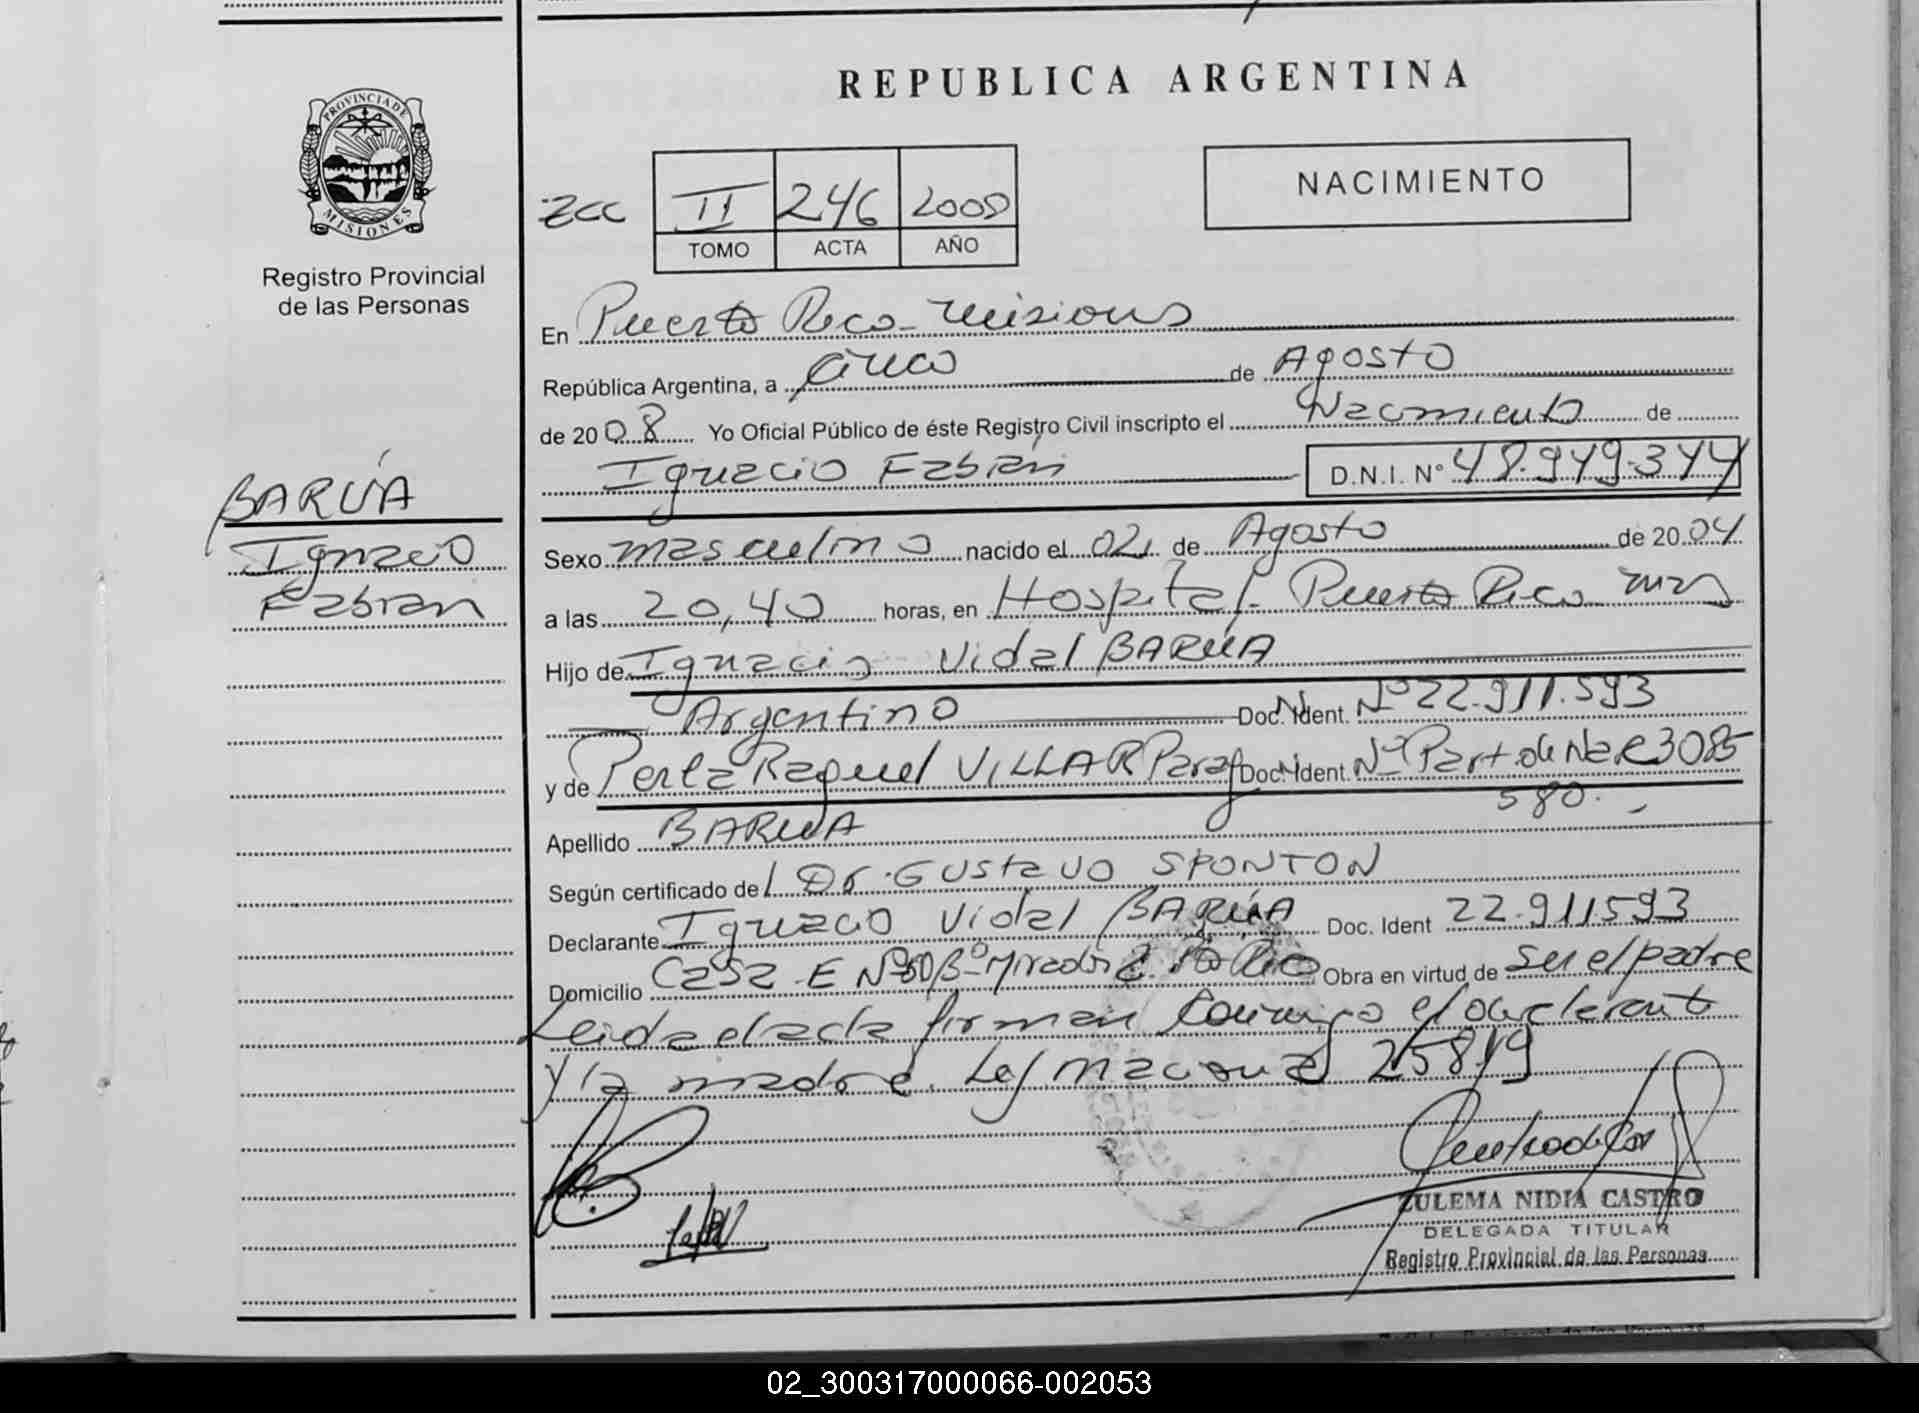 REPUBLICA ARGENTINA
PROVINCIA DE
MISIONES
Registro Provincial
de las Personas
NACIMIENTO
II 246
TOMO ACTA AÑO
En Puerto Rico - Misiones
República Argentina, a cinco de Agosto
de 2008 Yo Oficial Público de éste Registro Civil inscripto el Nacimiento de
Ignacio Fabián D.N.I. Nº 48.949.344
BARÚA
Ignacio
Fabian
Sexo masculino nacido el 02 de Agosto de 2004
a las 20,40 horas, en Hospital - Puerto Rico
Hijo de Ignacio Vidal BARÚA
Argentino Doc. Ident. Nº 22.911.593
y de Perla Raquel VILLAR Parag Doc. Ident. Nº Part. de Nac 3085
580.-
Apellido BARÚA
Según certificado del Dr. GUSTAVO SPONTON
Declarante Ignacio Vidal BARÚA Doc. Ident 22.911593
Domicilio Casa E Nº Bº Mirador 2 Pto Rico Obra en virtud de ser el padre
Leida el acta firman conmigo el declarante
y la madre. Ley Nacional 25819
ZULEMA NIDIA CASTRO
DELEGADA TITULAR
Registro Provincial de las Personas
02_300317000066-002053